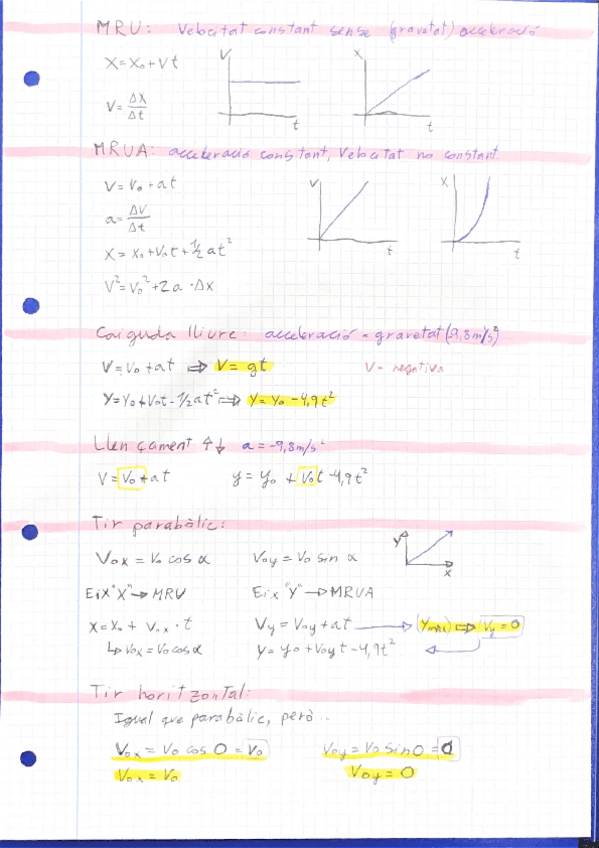 MRU: Velocitat constant sense (gravetat) acceleració
X = X₀ + Vt
V
t
X
t
V = ΔX/Δt
MRUA: acceleració constant, Velocitat no constant.
V = V₀ + at
V
t
X
t
a = ΔV/Δt
X = X₀ + V₀t + 1/2 at²
V² = V₀² + 2a · ΔX
Caiguda lliure: acceleració = gravetat (9,8m/s²)
V = V₀ + at ⇒ V = gt
V = negativa
Y = Y₀ + V₀t - 1/2 at² ⇒ Y = Y₀ - 4,9t²
Llençament ↑↓ a = -9,8m/s²
V = V₀ + at
y = y₀ + V₀t - 4,9t²
Tir parabòlic:
V₀x = V₀ cos α
V₀y = V₀ sin α
y
x
Eix "X" → MRU
Eix "Y" → MRUA
x = x₀ + V₀x · t
Vy = V₀y + at → (Ymàx) ⇒ Vy = 0
↳ V₀x = V₀ cos α
y = y₀ + V₀y t - 4,9t² ←
Tir horitzontal:
Igual que parabòlic, però...
V₀x = V₀ cos 0 = V₀
V₀y = V₀ sin 0 = 0
V₀x = V₀
V₀y = 0